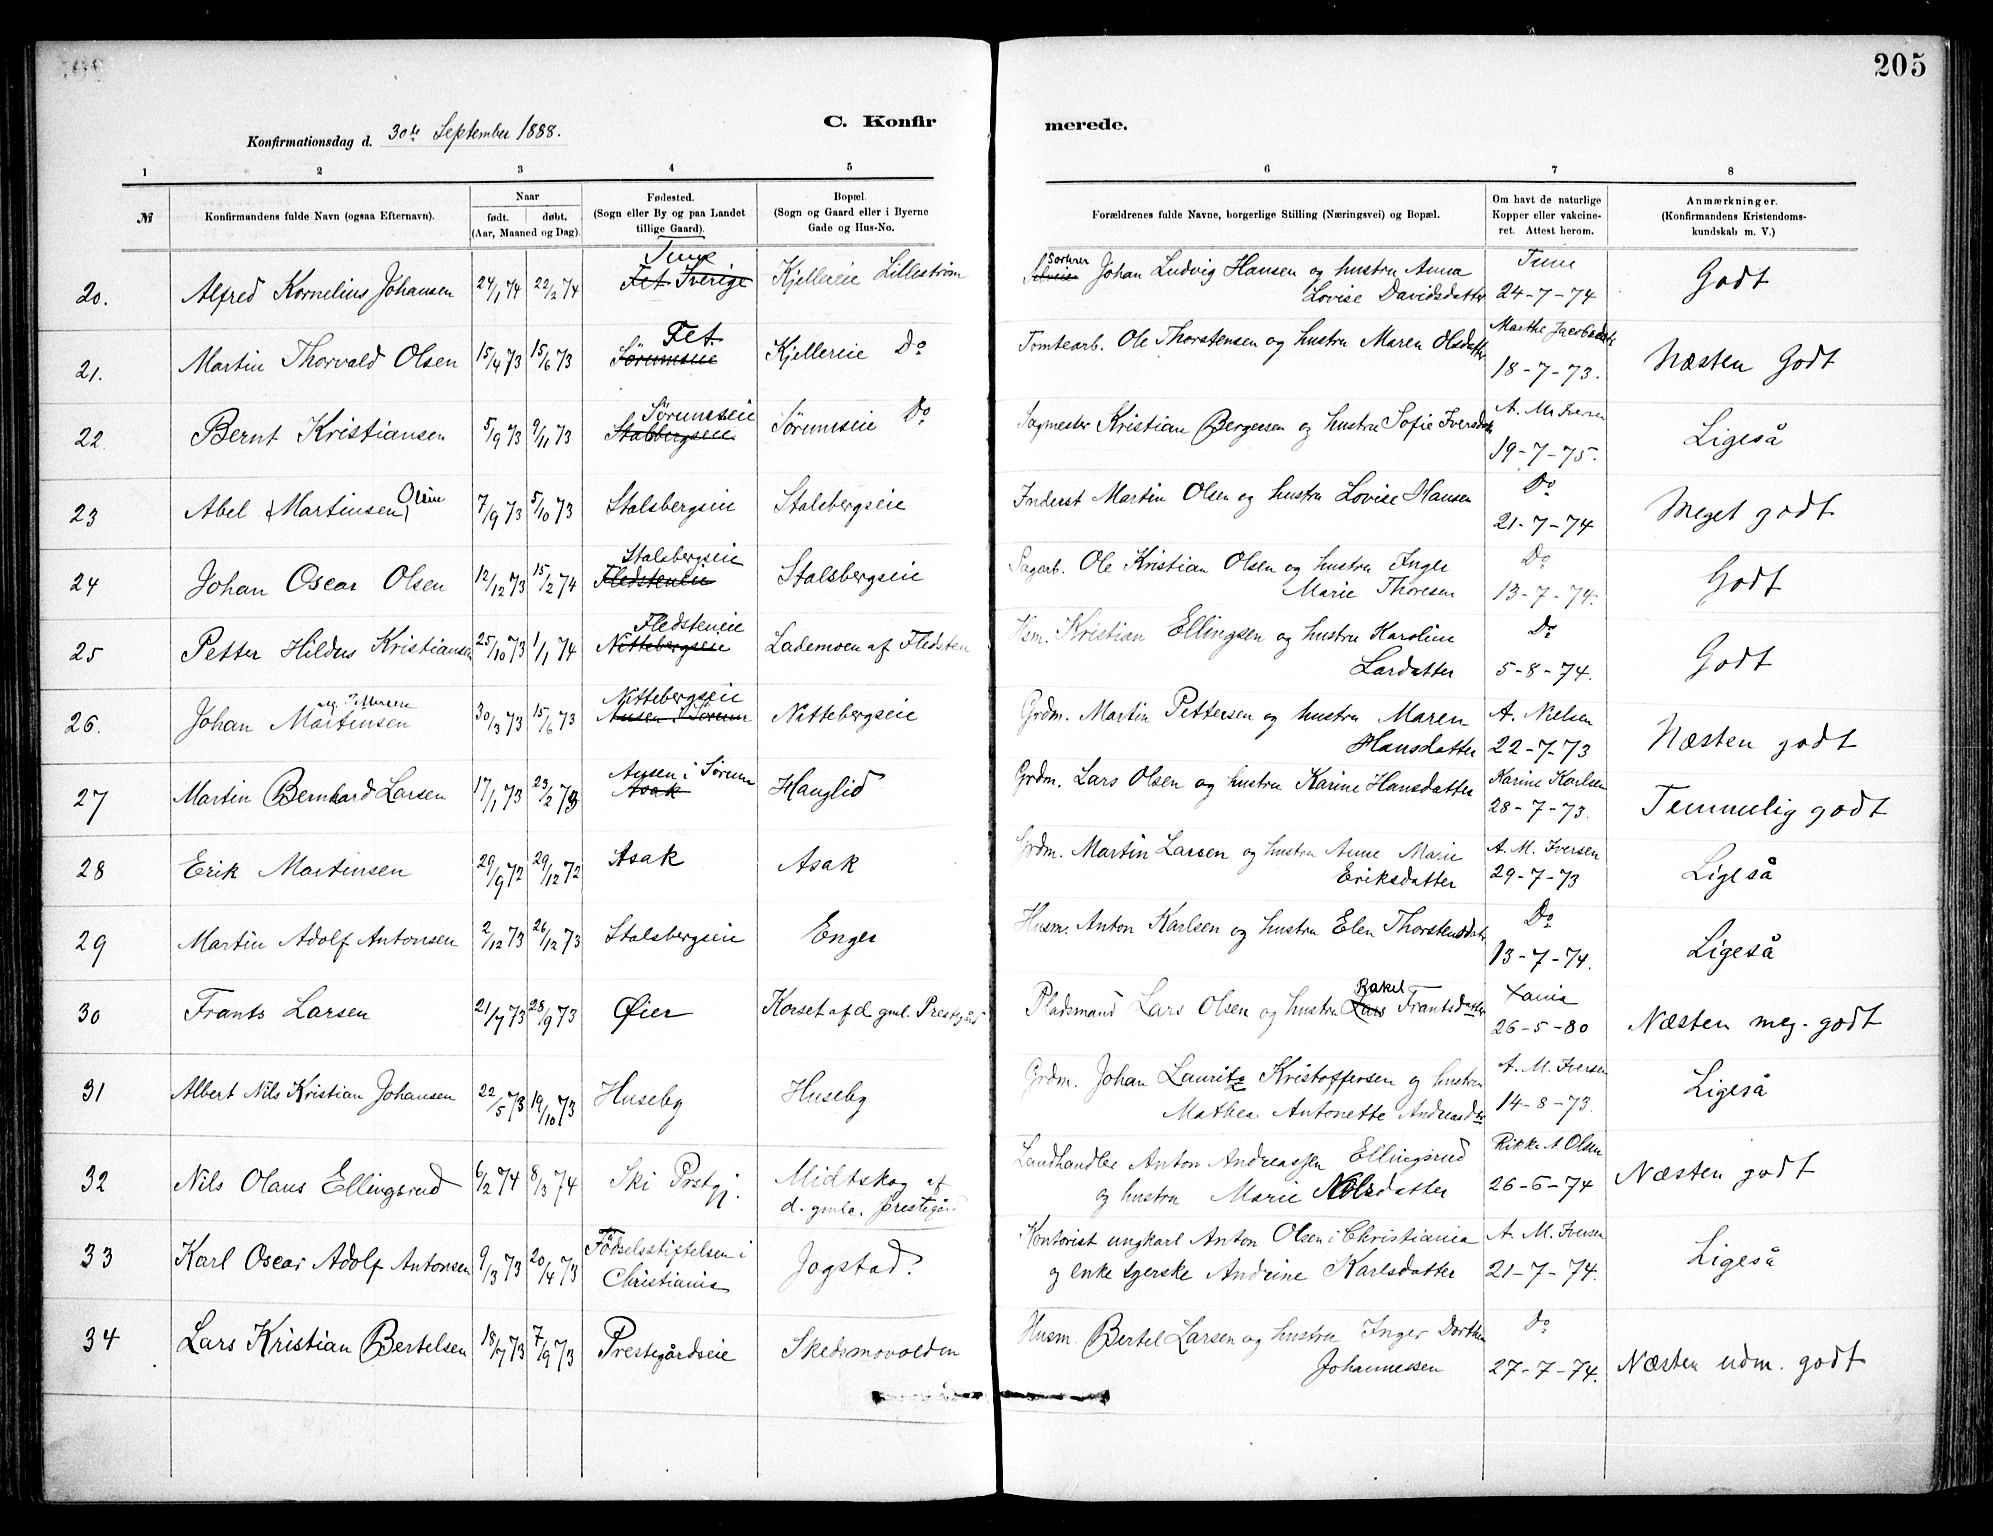 205
C. Konfir merede.
Konfirmationsdag d. 30te September 1888.
1 2 3 4 5 6 7 8
№ Konfirmandens fulde Navn (ogsaa Efternavn). Naar født. døbt. (Aar, Maaned og Dag). Fødested. (Sogn eller By og paa Landet tillige Gaard). Bopæl. (Sogn og Gaard eller i Byerne Gade og Hus-No. Forældrenes fulde Navne, borgerlige Stilling (Næringsvei) og Bopæl. Om havt de naturlige Kopper eller vakcineret. Attest herom. Anmærkninger. (Konfirmandens Kristendomskundskab m. V.)
20. Alfred Kornelius Johansen 24/1 74 22/2 74 Tune Fet Sverige Kjellereie Lillestrøm Sorterer Johan Ludvig Hansen og hustru Anna Tune Godt
Lovise Davidsdatter 24-7-74
21. Martin Thorvald Olsen 15/4 73 15/6 73 Fet Sørumseie Kjellereie Do Tomtearb. Ole Thorstensen og hustru Maren Olsdatter Marthe Jacobsdatt Næsten Godt
18-7-73.
22. Bernt Kristiansen 5/9 73 9/11 73 Sørumseie Stalsbergseie Sørumseie Do Sagmester Kristian Bergersen og hustru Sofie Iversdatt A. M. Iversen Ligeså
19-7-75.
23 Abel (Martinsen) Oline 7/9 73 5/10 73 Stalsbergseie Stalsbergseie Inderst Martin Olsen og hustru Lovise Hansen Do Meget godt
21-7-74
24 Johan Oscar Olsen 12/12 73 15/2 74 Stalsbergseie Fledsteneie Stalsbergseie Sagarb. Ole Kristian Olsen og hustru Inger Do Godt
Marie Thoresen 13-7-74.
25 Petter Hildus Kristiansen 25/10 73 1/1 74 Fledsteneie Nittebergseie Lademoen af Fledsten Hsm. Kristian Ellingsen og hustru Karoline Do Godt
Larsdatter 5-8-74.
26. Johan Martinsen 30/3 73 15/6 73 Nittebergseie Ausen i Sørum Nittebergseie Grdm. Martin Pettersen og hustru Maren A. Nielsen Næsten godt
Hansdatter 22-7-73
27 Martin Bernhard Larsen 17/1 73 23/2 73 Ausen i Sørum Asak Hauglid Grdm. Lars Olsen og hustru Karine Hansdatter Karine Karlsen Temmelig godt
28-7-73.
28 Erik Martinsen 29/9 72 29/12 72 Asak Asak Grdm. Martin Larsen og hustru Anne Marie A. M. Iversen Ligeså
Eriksdatter 29-7-73
29 Martin Adolf Antonsen 2/12 73 26/12 73 Stalsbergseie Enger Husm. Anton Karlsen og hustru Elen Thorstensdatr Do Ligeså
13-7-74.
30 Frants Larsen 21/7 73 28/9 73 Øier Korset af d. gml. Prestgård Pladsmand Lars Olsen og hustru Lars Rakel Frantsdatter 26-5-80 Næsten meg. godt
31 Albert Nils Kristian Johansen 22/5 73 19/10 73 Huseby Huseby Grdm. Johan Lauritz Kristoffersen og hustru A. M. Iversen Ligeså
Mathea Antonette Andreasd 14-8-73.
32 Nils Olaus Ellingsrud 6/2 74 8/3 74 Ski Prstgj. Midtskog af d. gmle. prestegård Landhandler Anton Andreassen Ellingsrud Rikke A Olsen Næsten godt
og hustru Marie Nilsdatter 26-6-74
33 Karl Oscar Adolf Antonsen 9/3 73 20/4 73 Fødselsstiftelsen i Christiania Jogstad? Kontorist ungkarl Anton Olsen i Christiania A. M. Iversen Ligeså
og enke tjerske Andrine Karlsdatter 21-7-74.
34 Lars Kristian Bertelsen 18/7 73 7/9 73 Prestegårdseie Skedsmovolden Husm. Bertel Larsen og hustru Inger Dorthea Do Næsten udm. godt
Johannessen 27-7-74.